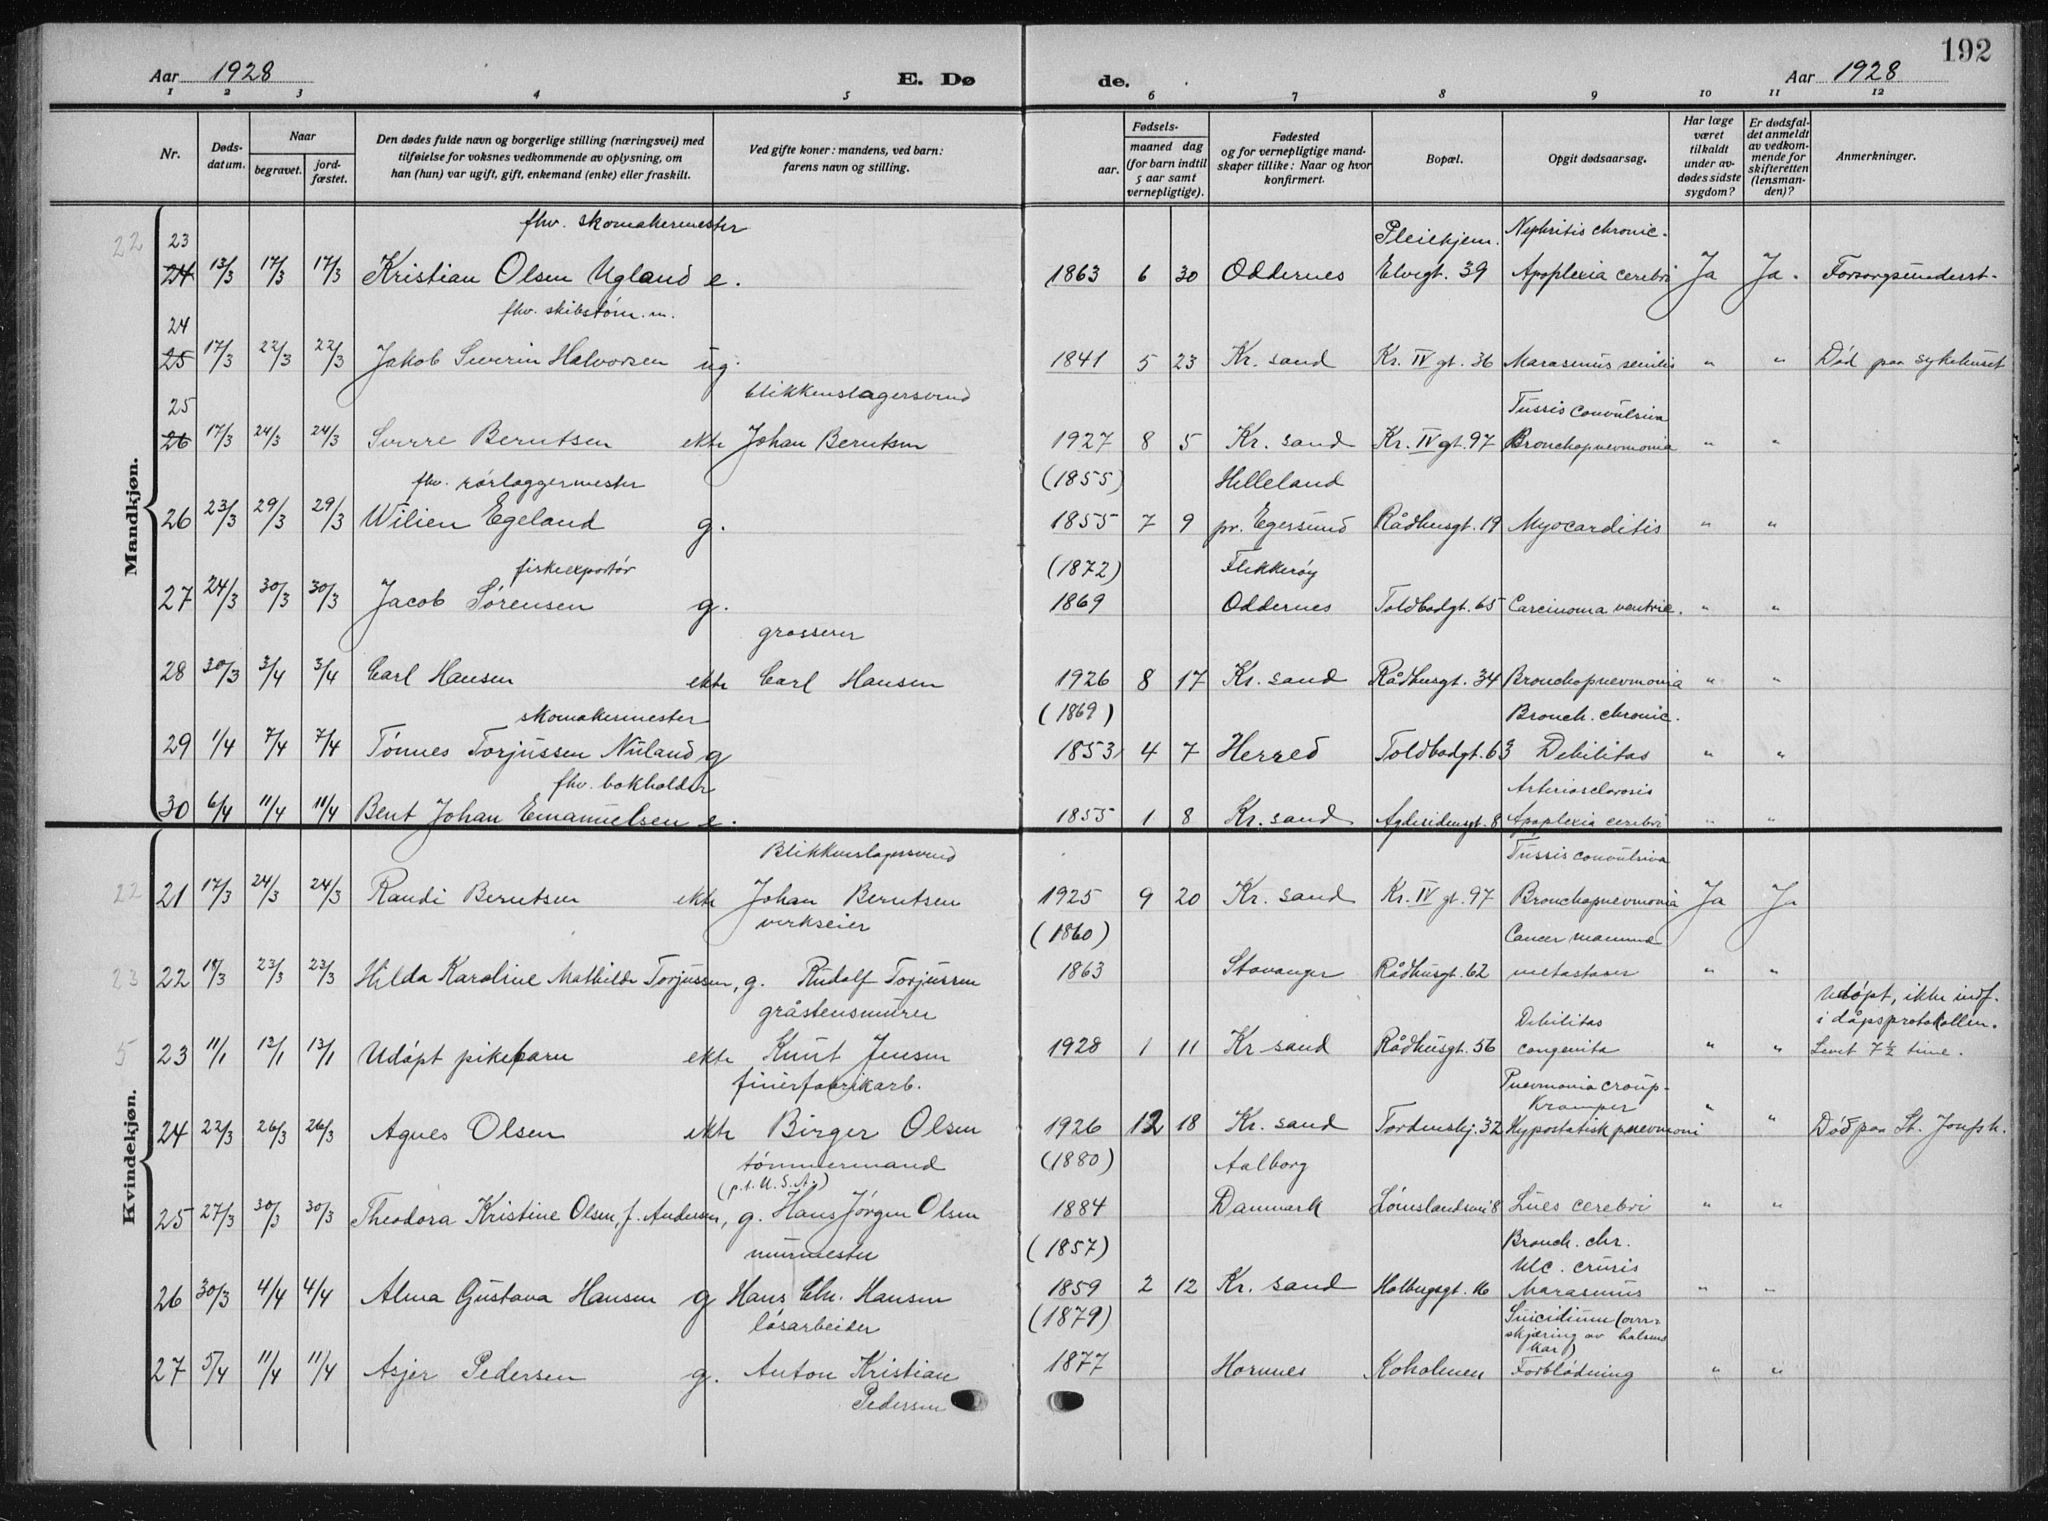 192
Aar 1928 E. Døde. Aar 1928
1 2 3 4 5 6 7 8 9 10 11 12
Nr.
Døds-datum.
Naar
begravet.
jord-fæstet.
Den dødes fulde navn og borgerlige stilling (næringsvei) med
tilføielse for voksnes vedkommende av oplysning, om
han (hun) var ugift, gift, enkemand (enke) eller fraskilt.
Ved gifte koner: mandens, ved barn:
farens navn og stilling.
Fødsels-
aar.
maaned dag
(for barn indtil
5 aar samt
vernepligtige).
Fødested
og for vernepligtige mand-
skaper tillike: Naar og hvor
konfirmert.
Bopæl.
Opgit dødsaarsag.
Har læge
været
tilkaldt
under av-
dødes sidste
sygdom?
Er dødsfal-
det anmeldt
av vedkom-
mende for
skifteretten
(lensman-
den)?
Anmerkninger.
Mandkjøn.
fhv. skomakermester Pleiehjem. Nephritis chronic.
22 23 24 13/3 17/3 17/3 Kristian Olsen Ugland e. 1863 6 30 Oddernes Elvegt. 39 Apoplexia cerebri Ja Ja. Forsorgsunderst.
fhv. skibstøm.m.
24 25 17/3 22/3 22/3 Jakob Severin Halvorsen ug. 1841 5 23 Kr. sand Kr. IV gt. 36 Marasmus senilis " " Død paa sykehuset
blikkenslagersvend Tussis convulsiva
25 26 17/3 24/3 24/3 Sverre Berntsen ekte Johan Berntsen 1927 8 5 Kr. sand Kr. IV gt. 97 Bronchopnevmonia " "
fhv. rørlæggermester (1855) Helleland
26 23/3 29/3 29/3 Wilien Egeland g. 1855 7 9 pr. Egersund Rådhusgt. 19 Myocarditis " "
fiskeexportør (1872) Flekkerøy
27 24/3 30/3 30/3 Jacob Sørensen g. 1869 Oddernes Toldbodgt. 65 Carcinoma ventric. " "
grosserer
28 30/3 3/4 3/4 Carl Hansen ekte Carl Hansen 1926 8 17 Kr. sand Rådhusgt. 34 Bronchopnevmonia " "
skomakermester (1869) Bronch. chronic.
29 1/4 7/4 7/4 Tønnes Torjussen Nuland g 1853 4 7 Herred Toldbodgt. 63 Debilitas " "
fhv. bokholder Arteriosclerosis
30 6/4 11/4 11/4 Bent Johan Emanuelsen e. 1855 1 8 Kr. sand Agdesidensgt. 8 Apoplexia cerebri " "
Kvindekjøn.
Blikkenslagersvend Tussis convulsiva
22 21 17/3 24/3 24/3 Randi Berntsen ekte Johan Berntsen 1925 9 20 Kr. sand Kr. IV gt. 97 Bronchopnevmonia Ja Ja
verkseier (1860) Cancer mamma
23 22 18/3 23/3 23/3 Hilda Karoline Mathilde Torjussen, g. Rudolf Torjussen 1863 Stavanger Rådhusgt. 62 metastaser " "
gråstensmurer Debilitas Udøpt, ikke indf. i dåpsprotokollen.
5 23 11/1 13/1 13/1 Udøpt pikebarn ekte Knut Jensen 1928 1 11 Kr sand Rådhusgt. 56 congenita " " Levet 7½ time.
finérfabrikarb. Pnevmonia croup- Kramper
24 22/3 26/3 26/3 Agnes Olsen ekte Birger Olsen 1926 12 18 Kr. sand Tordenskj. 32 Hypostatisk pnevmoni " " Død paa St. Joseph.
tømmermand (p.t. U.S.A.) (1880) Aalborg
25 27/3 30/3 30/3 Theodora Kristine Olsen, f. Andersen, g. Hans Jørgen Olsen 1884 Danmark Lømslandsvei 8 Lues cerebri " "
murmester (1857) Bronch. chr. Ulc. cruris
26 30/3 4/4 4/4 Alma Gustava Hansen g Hans Chr. Hansen 1859 2 12 Kr. sand Holbergsgt. 16 Marasmus " "
løsarbeider (1879) Suicidium (over- skjæring av halsens kar)
27 5/4 11/4 11/4 Asjer Pedersen g. Anton Kristian Pedersen 1877 Hornnes Koholmen Forblødning " "